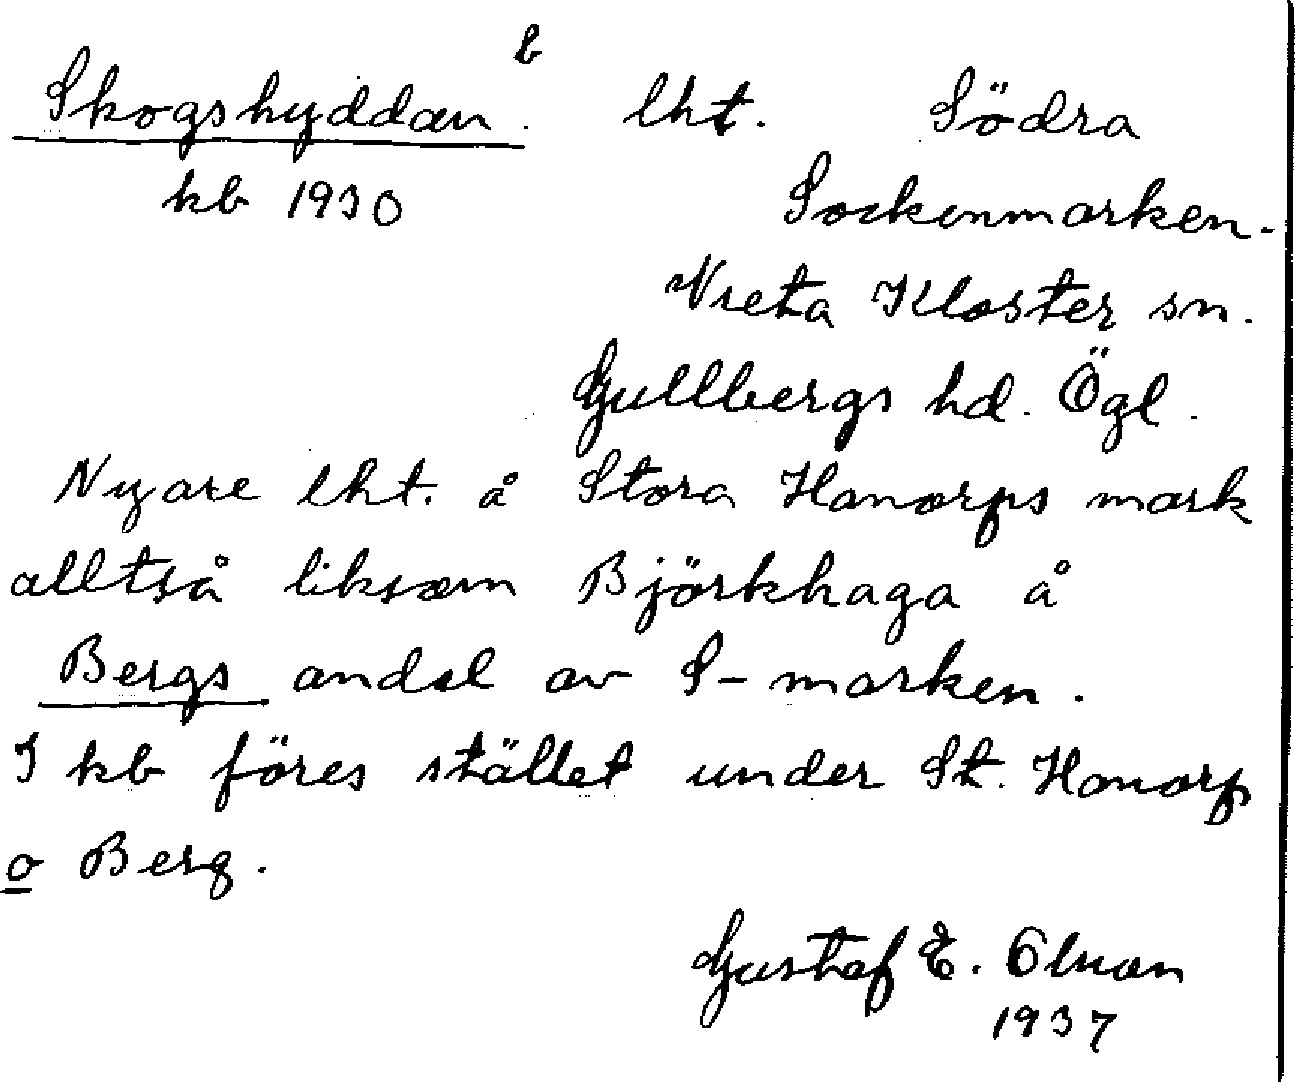 Skogshyddan b lht. Södra
kb 1930 Sockenmarken.
Vreta Kloster sn.
Gullbergs hd. Ögl.
Nyare lht. å Stora Honorps mark
alltså liksom Björkhaga å
Bergs andel av S-marken.
I kb föres stället under St. Honorp
o Berg.
Gustaf E. Olsson
1937